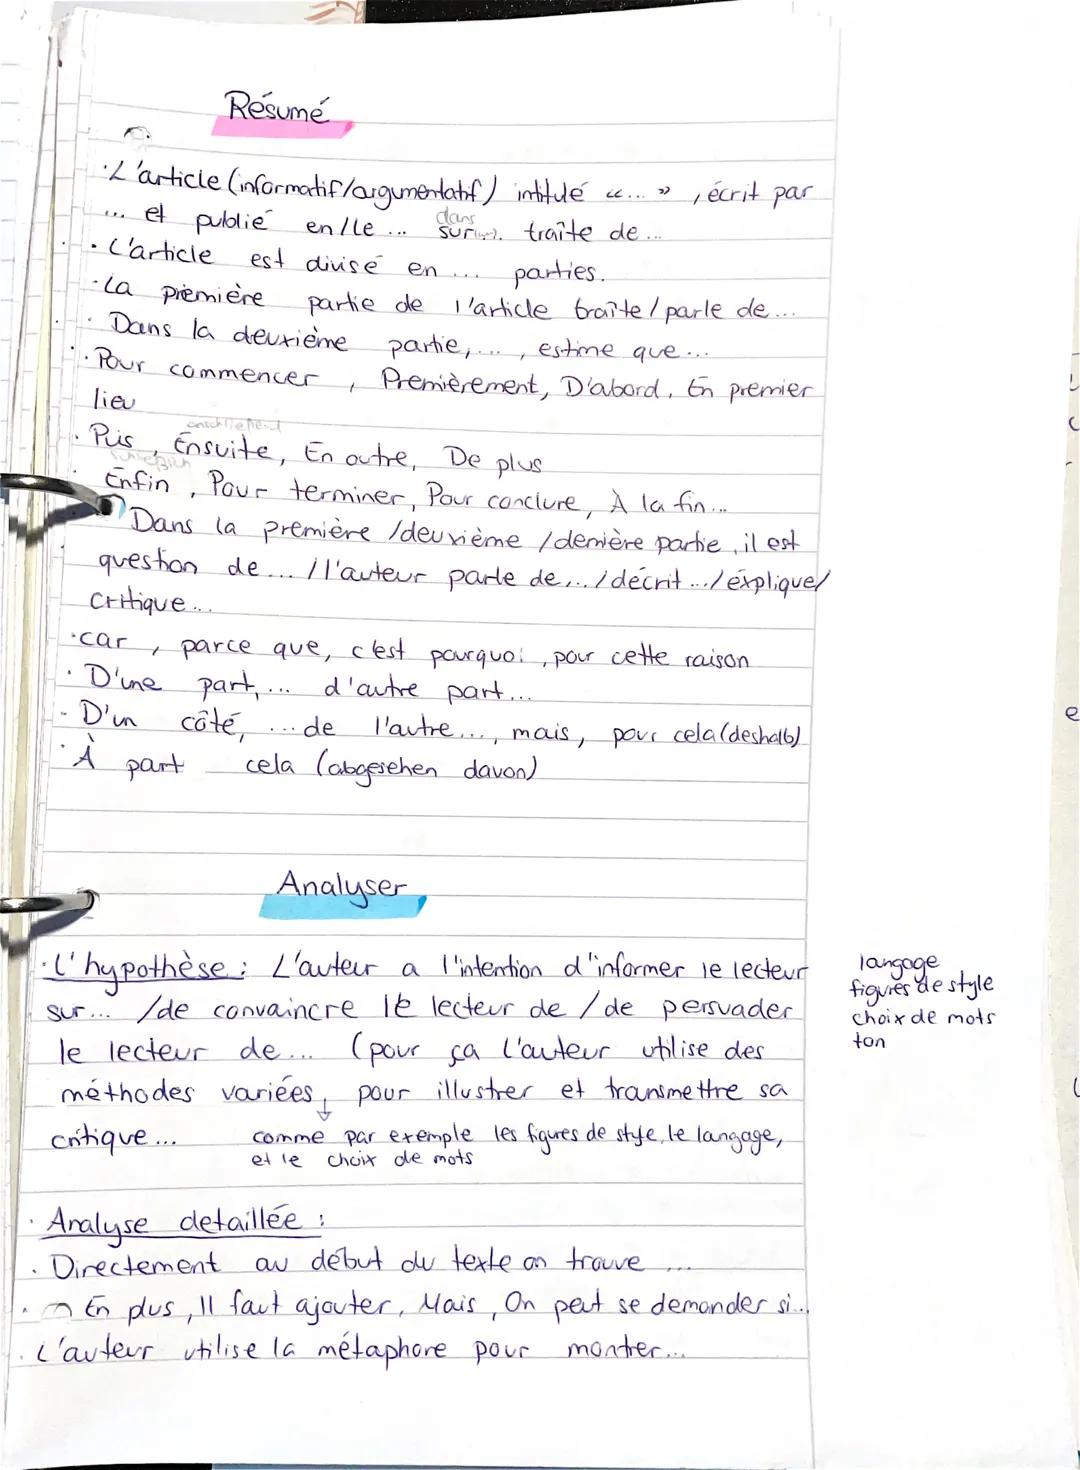 Résumé
·L'article (informatif/argumentatif) intitulé «...», écrit par
... et publié en/le ... dans sur traîte de ...
· L'article est divisé en ... parties.
·La première partie de l'article traîte / parle de ...
· Dans la deuxième partie, ..., estime que ...
· Pour commencer, Premièrement, D'abord, En premier
lieu
anschließend
· Puis, Ensuite, En outre, De plus
schließlich
· Enfin, Pour terminer, Pour conclure, À la fin ...
Dans la première /deuxième /dernière partie, il est
question de ... / l'auteur parle de ... / décrit ... / éxplique/
critique ...
·car, parce que, c'est pourquoi, pour cette raison
· D'une part, ... d'autre part ...
· D'un côté, ... de l'autre ..., mais, pour cela (deshalb)
· À part cela (abgesehen davon)
Analyser
· L'hypothèse : L'auteur a l'intention d'informer le lecteur
sur ... /de convaincre le lecteur de / de persuader
le lecteur de ... (pour ça l'auteur utilise des
méthodes variées, pour illustrer et transmettre sa
critique ... comme par exemple les figures de style, le langage,
et le choix de mots
langage
figures de style
choix de mots
ton
· Analyse detaillée :
· Directement au début du texte on trouve ...
· En plus, Il faut ajouter, Mais, On peut se demander si ...
· L'auteur utilise la métaphore pour montrer ...